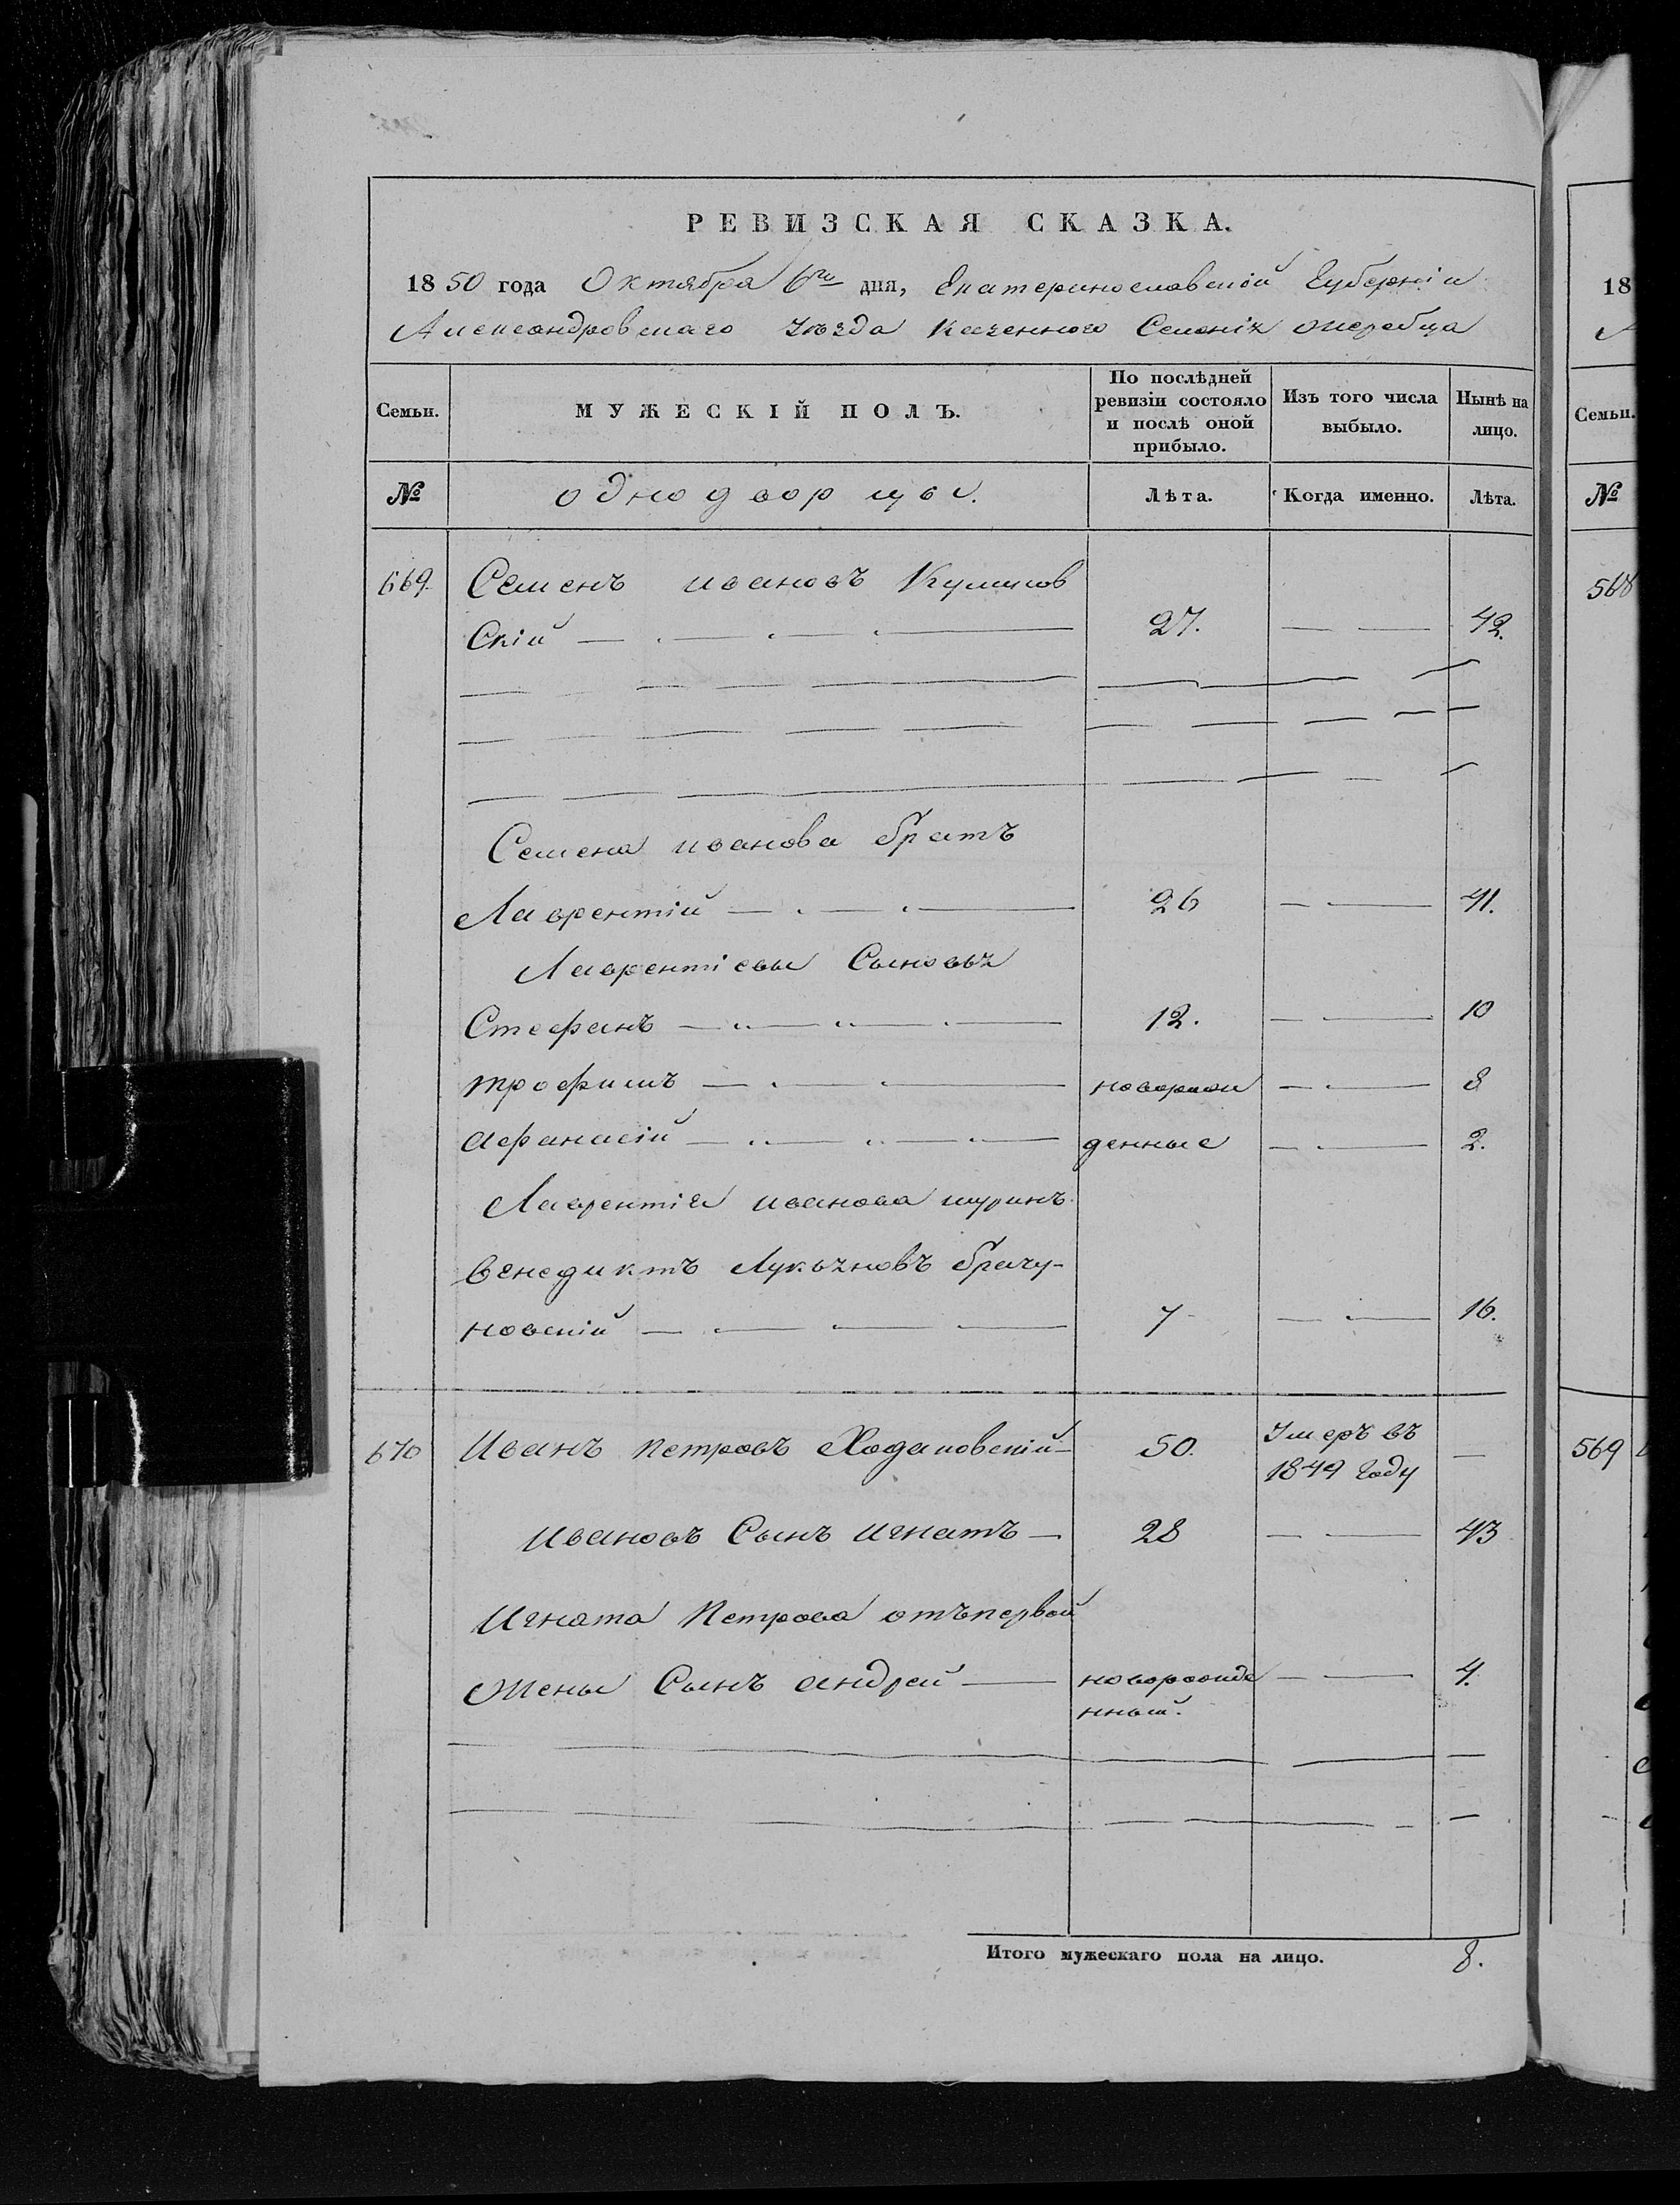 РЕВИЗСКАЯ СКАЗКА.
1850 года Октября 6го дня, Екатеринославской Губерніи
Александровскаго Уѣзда Казенного Селенія Жеребца
Семьи.
МУЖЕСКІЙ ПОЛЪ.
По послѣдней ревизіи состояло и послѣ оной прибыло.
Изъ того числа выбыло.
Нынѣ на лицо.
№
однодворцы.
Лѣта.
Когда именно.
Лѣта.
669. Семенъ ивановъ Куликов
Скій 27. 42.
Семена иванова братъ
Лаврентій 26 41.
Лаврентіевы Сыновья
Стефанъ 12. 10
трофимъ новорож 8
афанасій денные 2.
Лаврентія иванова шуринъ
венедиктъ Лукьяновъ
новскій 7 16.
670 Иванъ петровъ Ходаковскій 50. Умеръ въ
1849 году
ивановъ Сынъ игнатъ 28 43
Игната Петрова отъ первой
жены Сынъ андрей новорожде 4.
нный.
Итого мужескаго пола на лицо. 8.
18
Семьи.
№
568
569